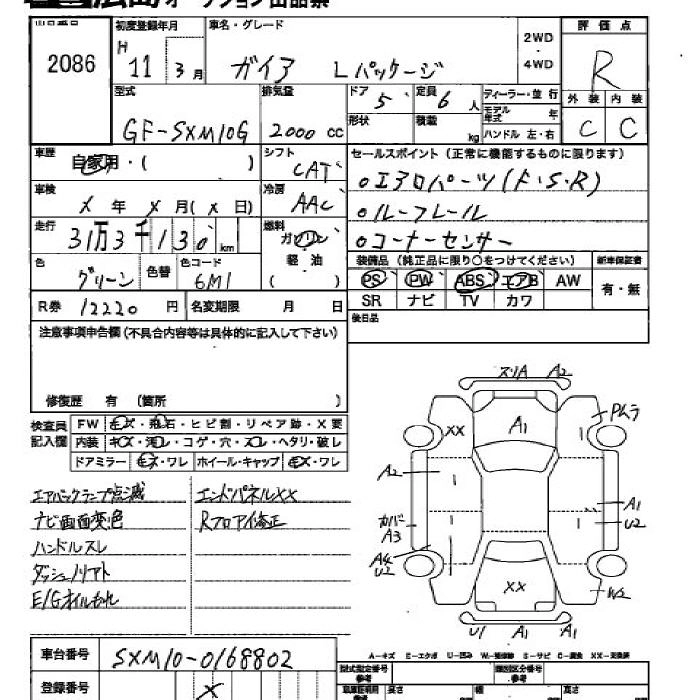 広島オークション出品票
出品番号 初度登録年月 車名・グレード 2WD・4WD 評価点
2086 H 11年 3月 ガイア Lパッケージ R
型式 排気量 ドア 5 定員 6人 ディーラー・並行 外装 内装
GF-SXM10G 2000cc 形状 積載 kg モデル年式 年 C C
ハンドル 左・右
車歴 自家用・( ) シフト CAT セールスポイント(正常に機能するものに限ります)
車検 X年 X月(X日) 冷房 AAC ○エアロパーツ(F・S・R)
走行 31万3千130km 燃料 ガソリン 軽油 ( ) ○ルーフレール
○コーナーセンサー
色 グリーン 色替 色コード 6M1 装備品(純正品に限り○をつけてください) 新車保証書
PS PW ABS エアB AW 有・無
R券 12220円 名変期限 月 日 SR ナビ TV カワ
注意事項申告欄(不具合内容等は具体的に記入して下さい) 後日品
修復歴 有(箇所 )
検査員記入欄 FW キズ・飛石・ヒビ割・リペア跡・X要
内装 キズ・汚レ・コゲ・穴・スレ・ヘタリ・破レ
ドアミラー キズ・ワレ ホイール・キャップ キズ・ワレ
エアバックランプ点滅 エンドパネルXX
ナビ画面変色 Rフロアイ修正
ハンドルスレ
ダッシュノリアト
E/Gオイルもれ
スリA A2
A1
XX 1 Pムラ
A2 1 1
カバーA3 1 1 A1 U2
A4 U2
XX W2
U1 A1 A1
車台番号 SXM10-0168802
A-キズ E-エクボ U-凹み W-補修跡 S-サビ C-腐食 XX-交換済
登録番号 X
型式指定番号 参考 類別区分番号 参考
長さ 幅 高さ